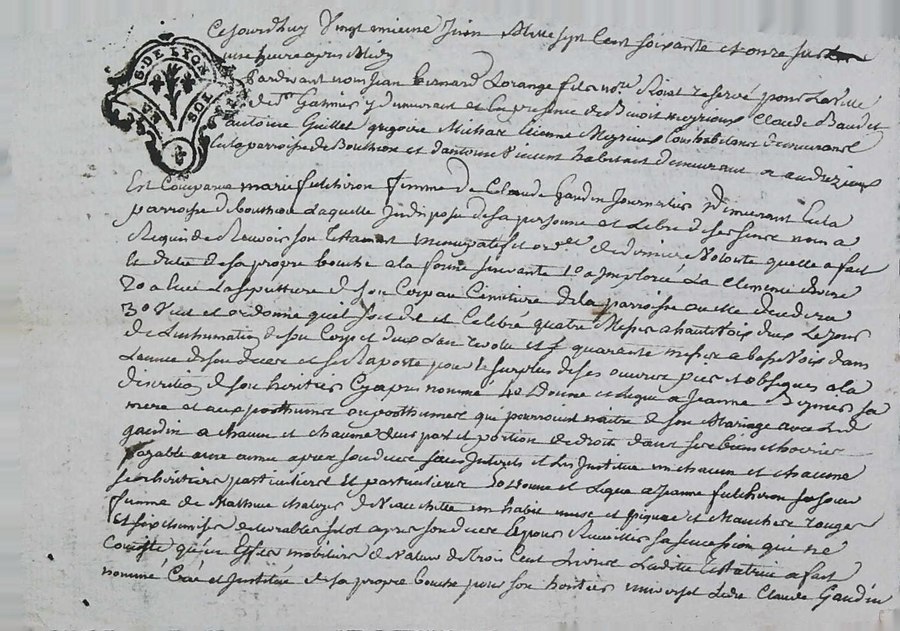 Cejourdhuy Vingt unieme Juin Mille sept Cent soixante et onze sur
une heure apres Midy
Pardevant nous Jean Bernard Lorange fils no.re Roial reservé pour la Ville
de St Galmier y demeurant et en presence de Benoit Meyrieux Claude Baudet
antoine Guillet gregoire Michar Etienne Meyrieux tous habitans demeurans
en la parroisse de Bouthion et d'antoine Vincent habitant demeurant a andrezieux
G. DE LYON
SOLS
Est Comparue marie fulchiron femme de Claude gaudin Journalier demeurant en la
parroisse de bouthion Laquelle Indisposée de sa personne et Libre de ses sens nous a
Requis de Recevoir son Testament nuncupatif et orde de derniere Volonté quelle a fait
et dicté de sa propre bouche a la forme suivante 1o a Imploré La Clemence divine
2o a Eleu La sepulture de son Corps au Cimetiere de la parroisse ou elle decedera
3o Veut et ordonne quil soit dit et Celebré quatre Messes a haute Voix deux Le jour
de L'inhumation de son Corps et deux L'an revolu et quarante messes a basse Voix dans
Lannee de son deces et se Raporte pour le surplus de ses oeuvres pies et obseques a la
discretion de son heritier Cy apres nommé 4o Donne et Legue a Jeanne sa
mere et aux posthumes ou posthumes qui pourroient naitre de son Mariage avec Led.
gaudin a chacun et chacune leurs part et portion de droit dans ses biens
payable une année apres son deces sans Interets et Les Institue un chacun et chacune
ses heritiers particuliers et particulieres 5o Donne et Legue a Jeanne fulchiron sa soeur
femme de Mathieu un habit et Manches rouges
et six chemises sitot apres son deces Et pour Recueillir sa succession qui ne
Consiste qu'en Effets mobiliers de Valeur de Trois Cent Livres Ladite Testatrice a fait
nommé Créé et Institué de sa propre bouche pour son heritier universel Ledt Claude Gaudin